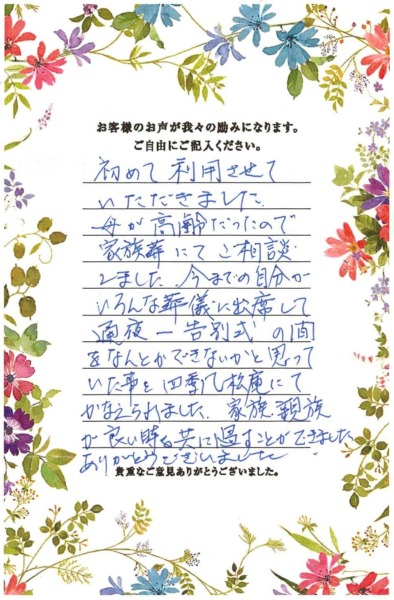 お客様のお声が我々の励みになります。
ご自由にご記入ください。
初めて利用させて
いただきました。
母が高齢だったので
家族葬にてご相談
しました。今までの自分が
いろんな葬儀に出席して
通夜ー告別式の間
をなんとかできないかと思って
いた事を四季乃松庵にて
かなえられました。家族、親族
が良い時を共に過すことができました。
ありがとうございました
貴重なご意見ありがとうございました。